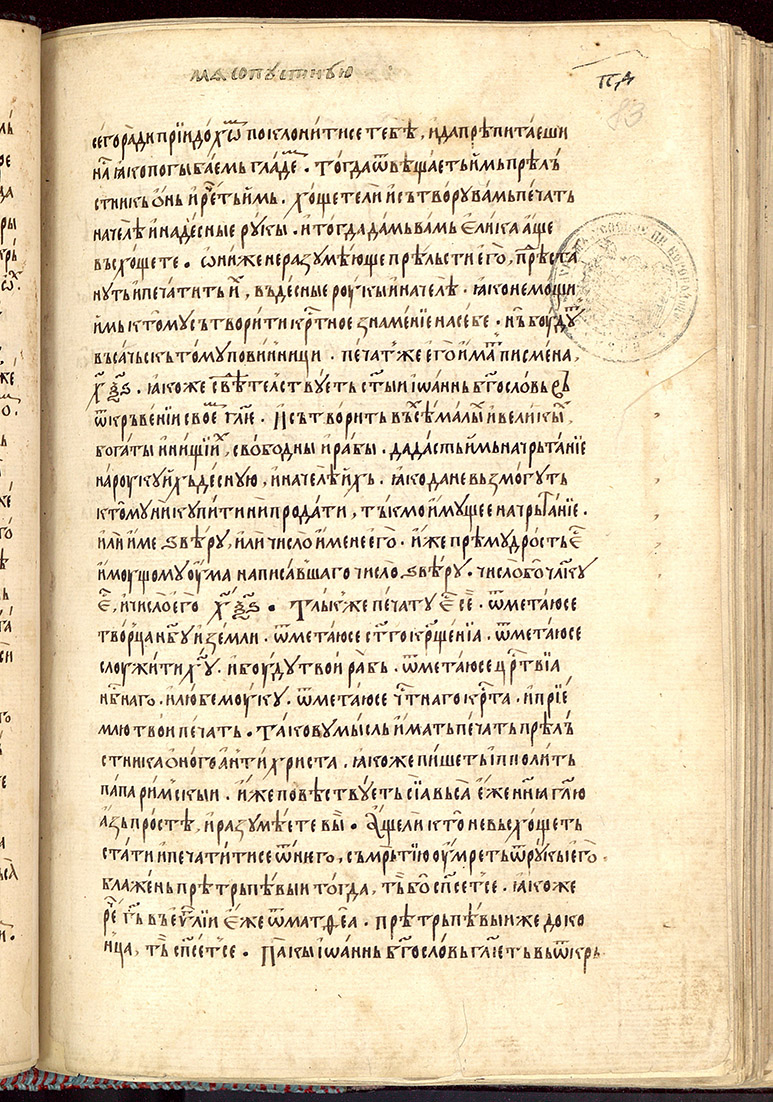 масопустнꙋю
п҃д
83
сегоради прїидохѡ̑ᵐ поклонити се тебѣ, и да прѣпитаеши
на̑ ꙗко погыбаемь гладѡ̑ᵐ. тогда ѿвѣщаеть имь прѣль
стникь ѻнь и рет̑ь имь. хощете ли и сьтворꙋ вамь печать
на челѣ и на десные рꙋкы. и тогда дамь вамь елика аще
вьсхощете. ѡни же не разꙋмѣюще прѣльсти его, прѣста
нꙋть и печатить и̑, вь десные роукы и на челѣ. ꙗко не мощи
имь к томꙋ сьтворити крⷭтное знаменїе на себе. нь̑ боудꙋⷮ
вьсачьскъ томꙋ повинници. печатⷤ же его имаⷮ писмена,
х҃ ѯ҃ ѕ҃. ꙗкоже свⷣѣтелствꙋеть ст҃ы іѡаннь бг҃ословь вь
ѿкръвени своеⷨ гл҃е. И сьтворить вьсѣⷯ малыⷯ и великыⷯ,
богаты и нищїиⷯ, свободны и рабы. да дасть имь начрьтанїе
на роукꙋ ихь деснꙋю, и на челѣ ихь. ꙗко да не вьзмогꙋть
к томꙋ ни кꙋпити ни продати, тькмо имꙋщее начрьтанїе.
или име ѕвѣрꙋ, или число имене его. иже прѣмꙋдрость еⷭ
имоущомꙋ оума написавшаго число ѕвѣрꙋ. число бо чл҃кꙋ
еⷭ, и число его х҃ ѯ҃ ѕ҃. Тлькⷤ же печатꙋ еⷭ се. ѿметаюсе
творца нб҃ꙋ и земли. ѿметаюсе ст҃го крⷭщенїа. ѿметаюсе
слоужити хⷭ҃ꙋ. и боудꙋ твои рабь. ѿметаюсе црⷭтвїа
нбⷭнаго. и любе моукꙋ. ѿметаюсе чⷭтнаго крⷭта. и прїе
млю твои печать. Таковꙋ мысль имать печать прѣль
стника ѻного антихриста. ꙗкоже пишеть іпполить
папа римскыи. иже повѣствꙋеть сїа вьса еже нн҃ꙗ гл҃ю
азь простѣ, и разꙋмѣете вы̑. Аще ли кто не вьсхощеть
стати и печатити се ѿ него, сьмрьтїю оумреть ѿ рꙋкы его.
блажень прѣтрьпѣвыи тогда, ть̑ бо спⷭсетⷭе. ꙗкоже
реⷱ гⷭь вь еѵⷢлїи еже ѿ матѳеа. прѣтрьпѣвыи же до ко
нца, тъ̑ спⷭсетⷭе. Пакы іѡаннь бг҃ословь гл҃еть вь ѿкрь